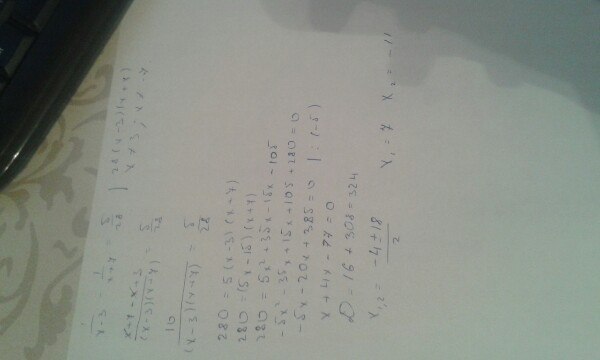 1/(x-3) - 1/(x+7) = 5/28 | 28(x-3)(x+7)
x ≠ 3; x ≠ -7
(x+7-x+3)/((x-3)(x+7)) = 5/28
10/((x-3)(x+7)) = 5/28
280 = 5(x-3)(x+7)
280 = (5x-15)(x+7)
280 = 5x² + 35x - 15x - 105
-5x² - 35x + 15x + 105 + 280 = 0
-5x - 20x + 385 = 0 | : (-5)
x + 4x - 77 = 0
D = 16 + 308 = 324
x₁,₂ = (-4 ± 18)/2
x₁ = 7 x₂ = -11